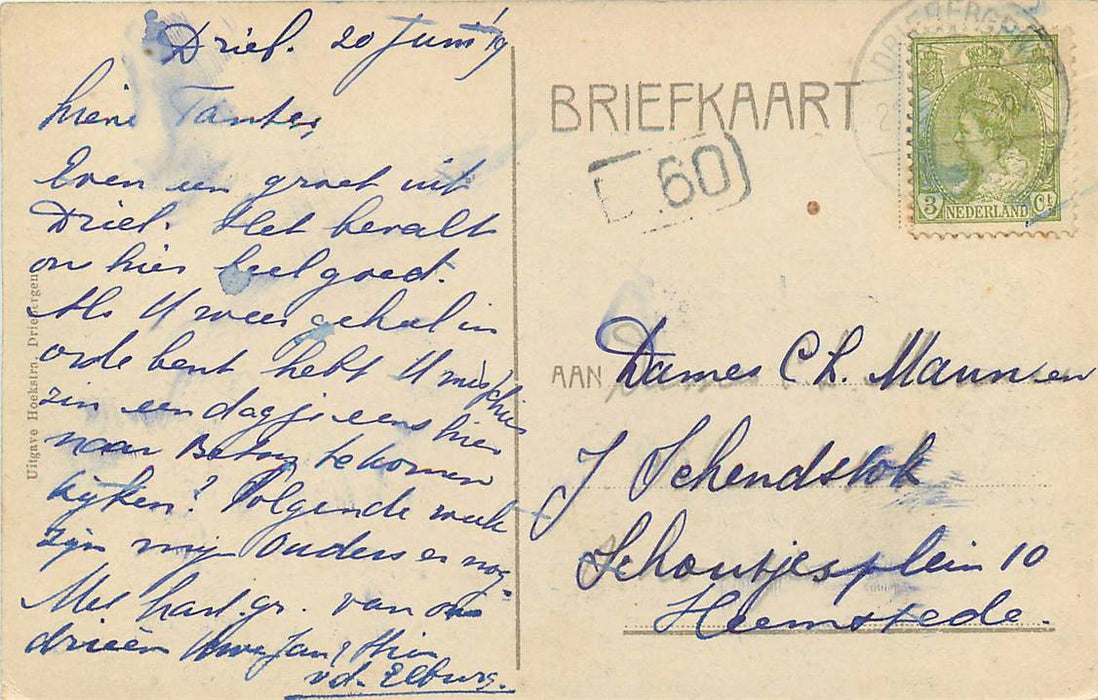 Drieb. 20 Juni '19
Lieve Tantes,
Even een groet uit
Drieb. Het bevalt
ons hier heel goed.
Als U weer geheel in
orde bent hebt U misschien
zin een dagje eens hier
naar te komen
kijken? Volgende week
zijn mijn Ouders er nog
Met hart. gr. van ons
drieën Jan &
v.d. Elburg.
Uitgave Hoekstra, Driebergen
BRIEFKAART
60
DRIEBERGEN
3 NEDERLAND Ct
AAN Dames C L. Mann en
J Schendstok
Schoutjesplein 10
Heemstede.